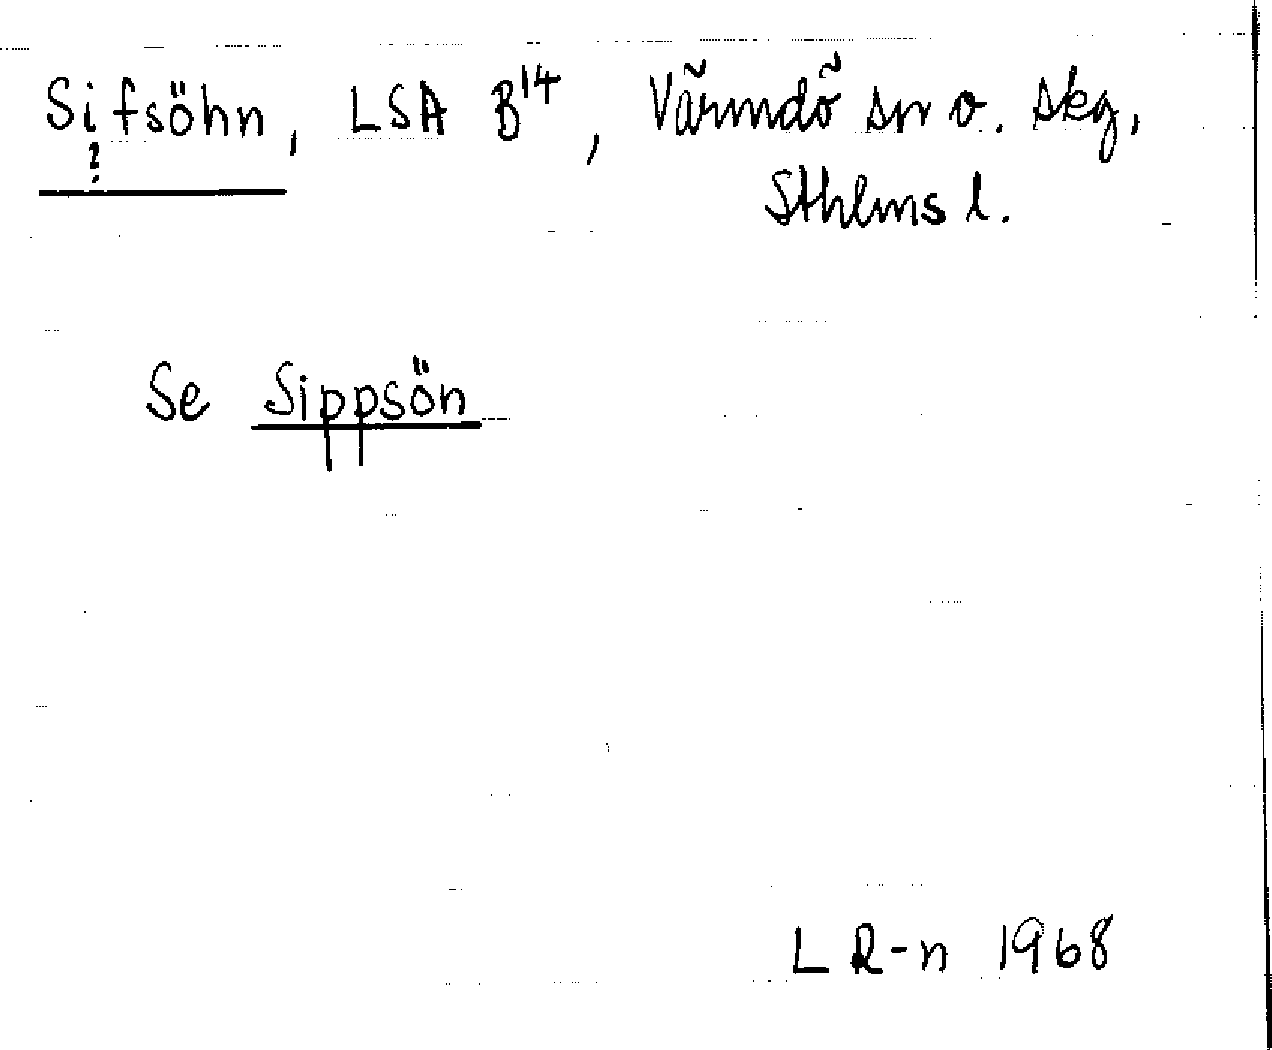 Sifsöhn, LSA B¹⁴, Värmdö sn o. skg,
?
Sthlms l.
Se Sippsön
L R-n 1968